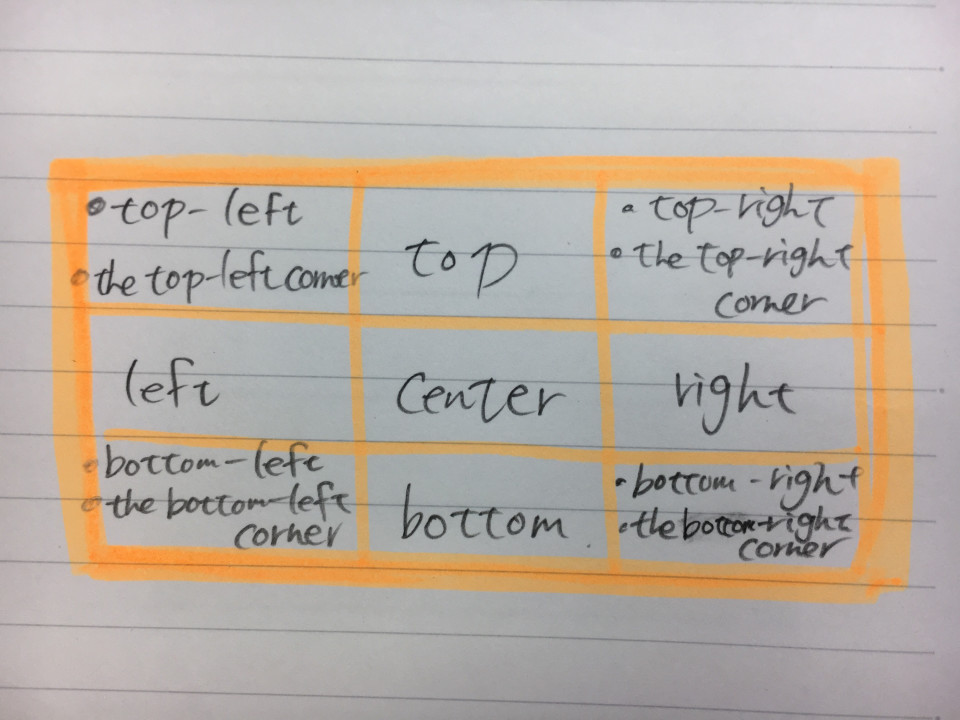 • top-left
• the top-left corner
top
• top-right
• the top-right
corner
left
center
right
• bottom-left
• the bottom-left
corner
bottom
• bottom-right
• the bottom-right
corner